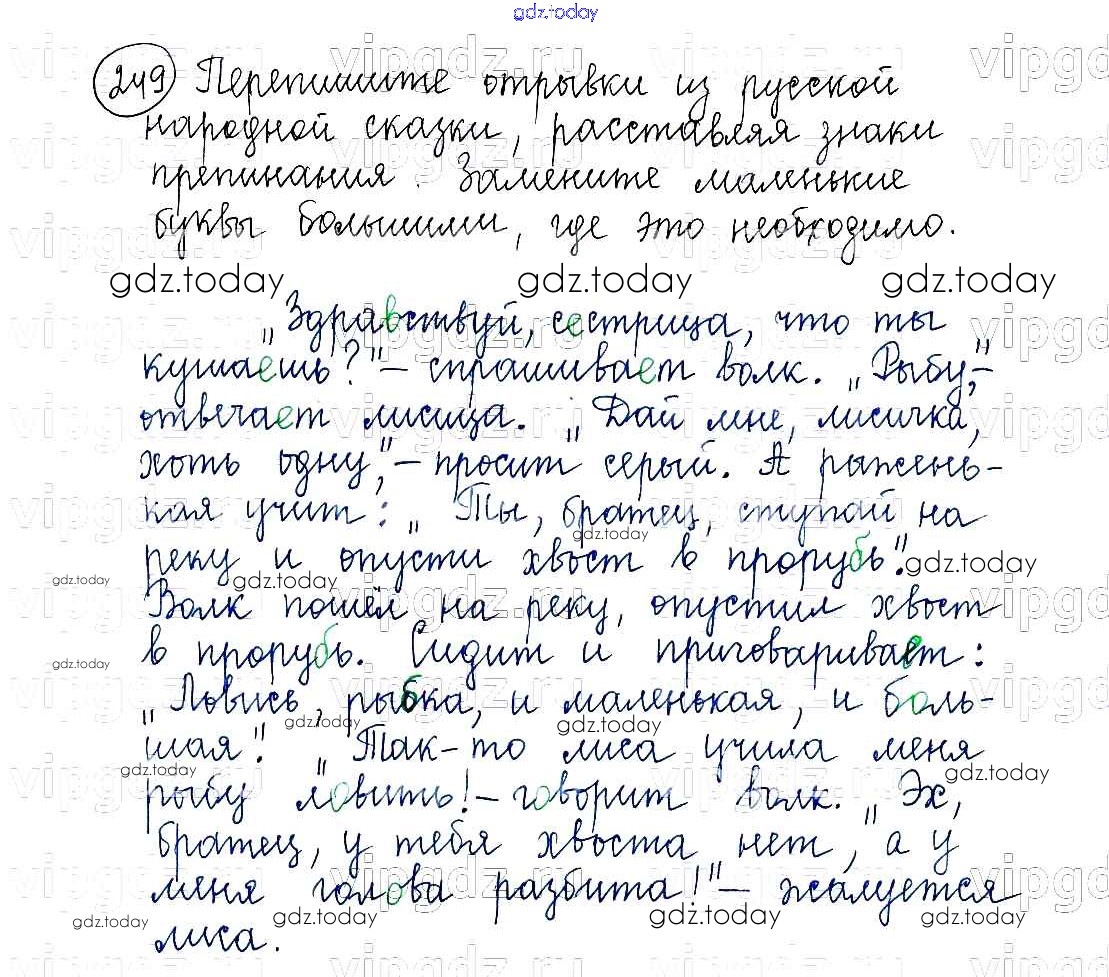 gdz.today
249 Перепишите отрывки из русской
народной сказки, расставляя знаки
препинания. Замените маленькие
буквы большими, где это необходимо.
gdz.today gdz.today gdz.today
„Здравствуй, сестрица, что ты
кушаешь?" – спрашивает волк. „Рыбу," –
отвечает лисица. „Дай мне, лисичка,
хоть одну," – просит серый. А рыжень-
кая учит: „Ты, братец, ступай на
реку и опусти хвост в прорубь".
Волк пошёл на реку, опустил хвост
в прорубь. Сидит и приговаривает:
„Ловись, рыбка, и маленькая, и боль-
шая". „Так-то лиса учила меня
рыбу ловить! – говорит волк. „Эх,
братец, у тебя хвоста нет, а у
меня голова разбита!" – жалуется
лиса.